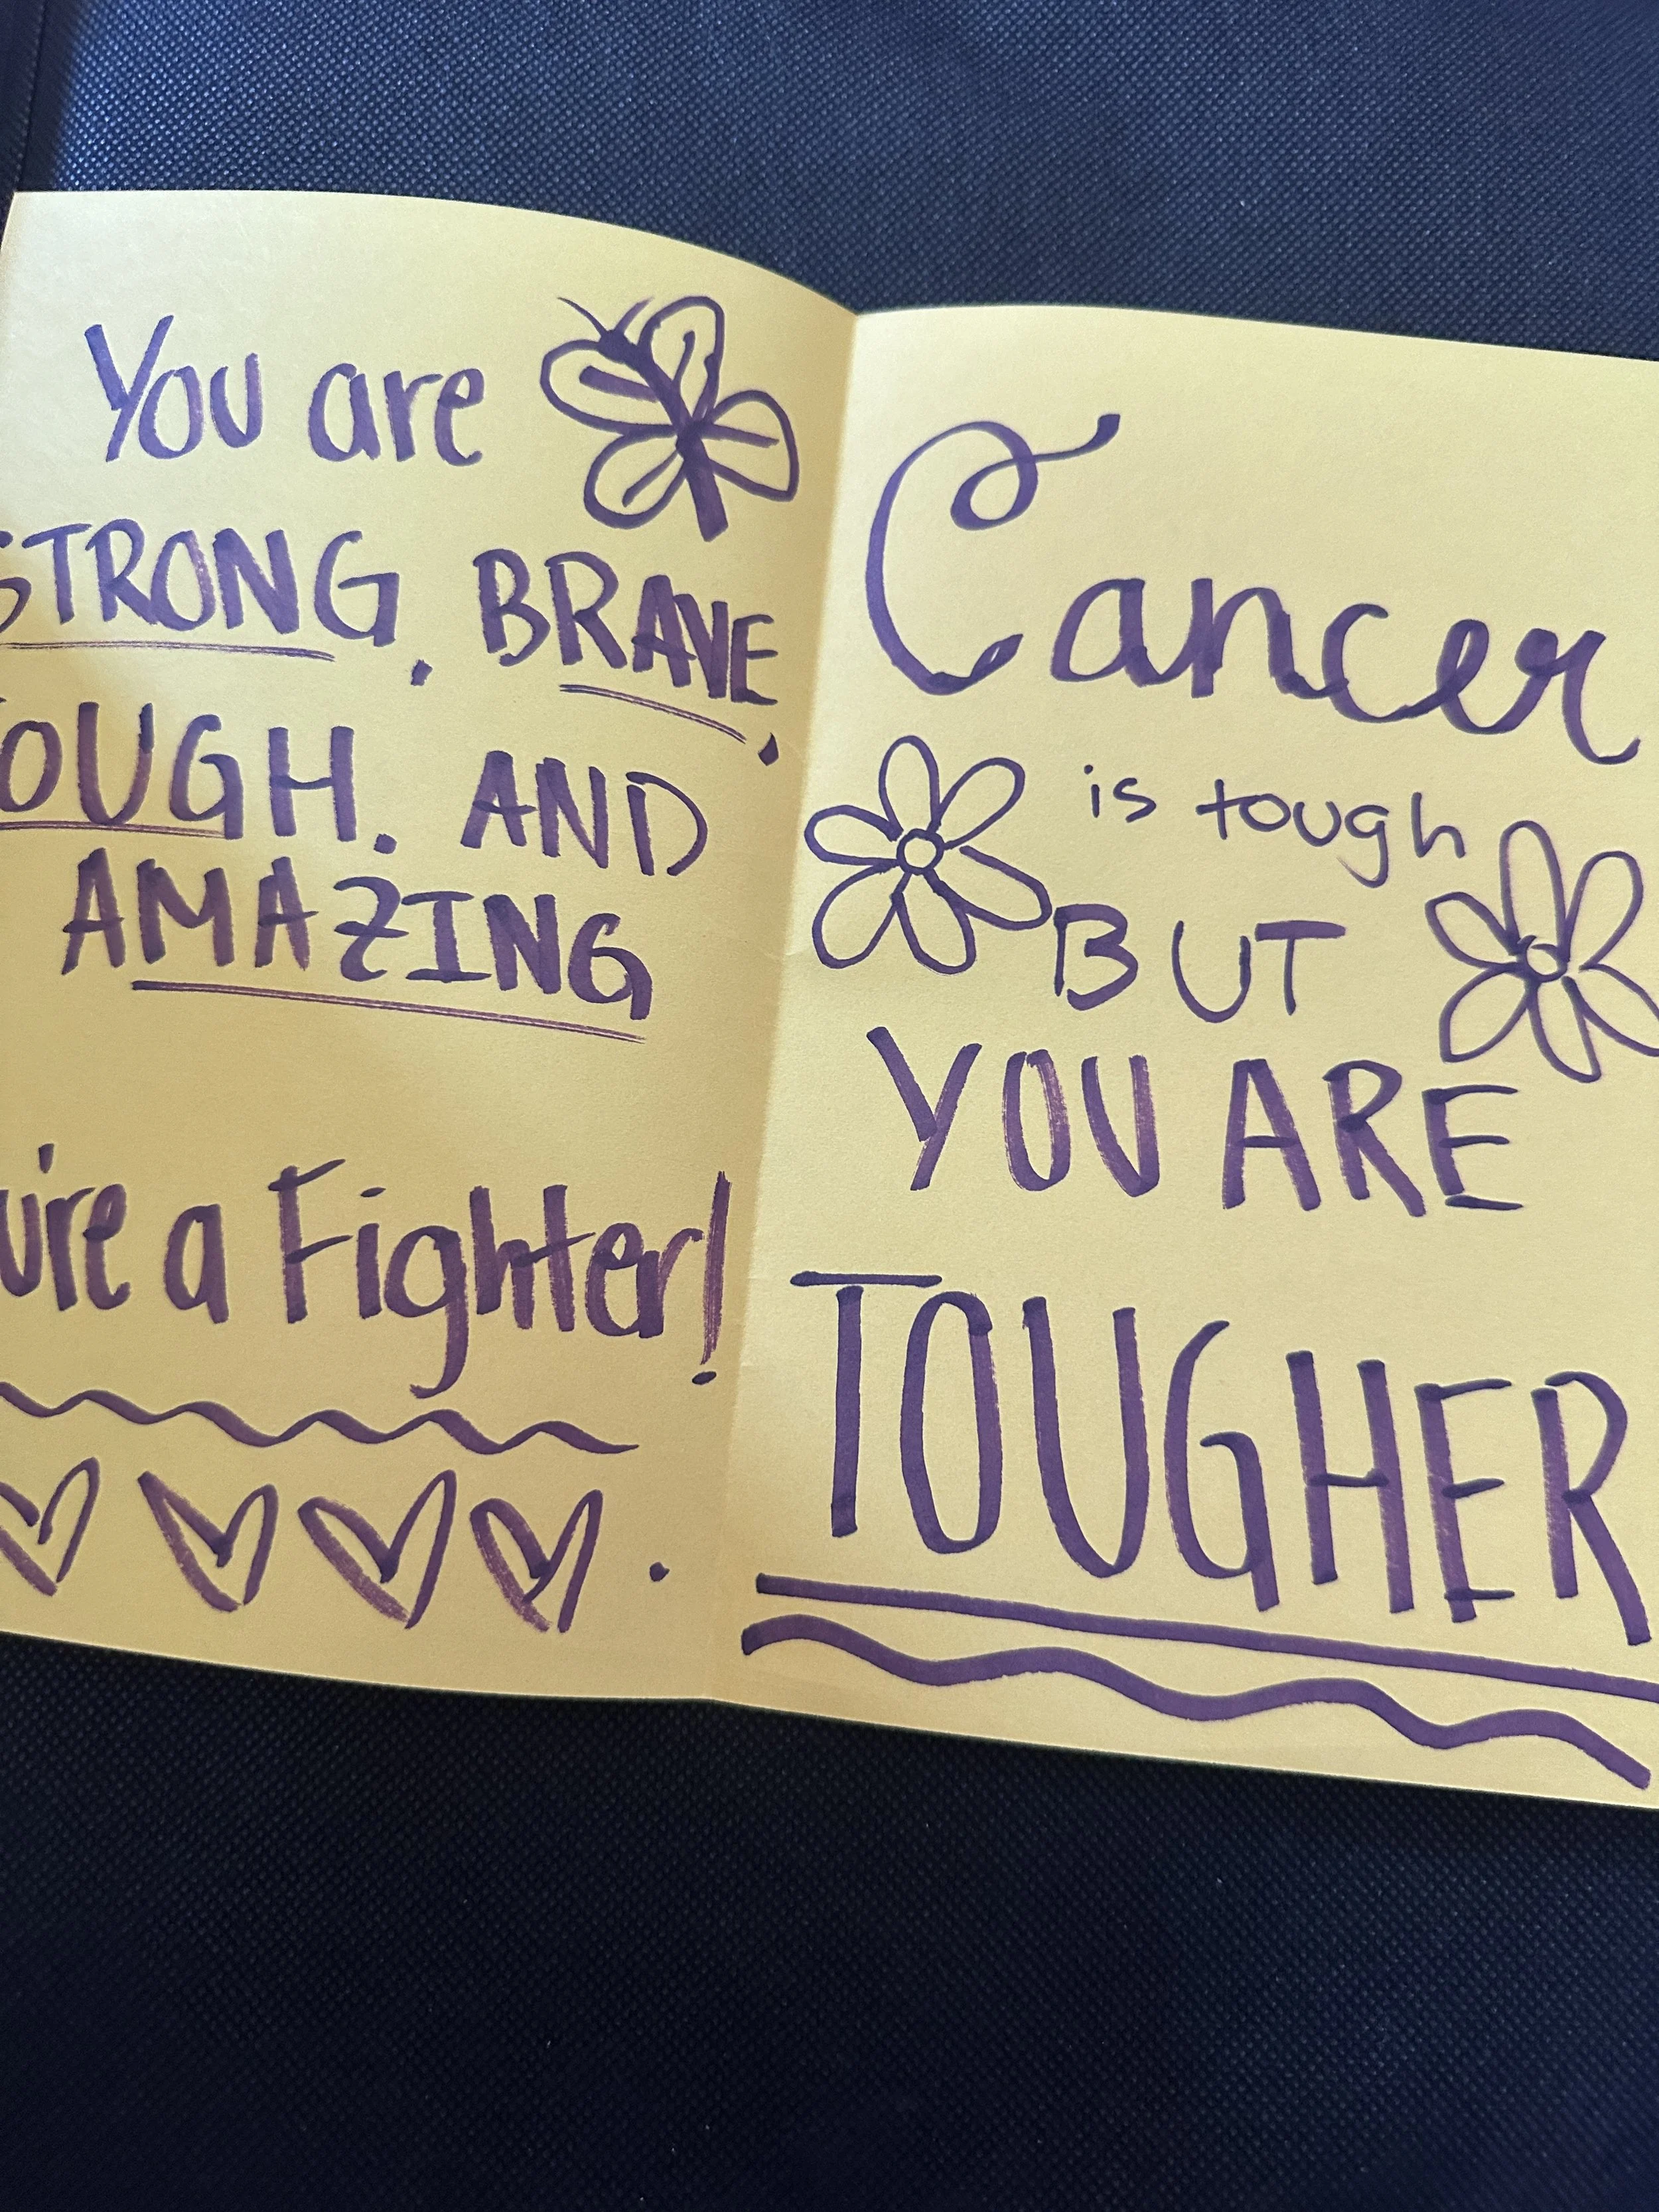 You are
STRONG, BRAVE,
TOUGH, AND
AMAZING
You're a Fighter!
Cancer
is tough
BUT
YOU ARE
TOUGHER